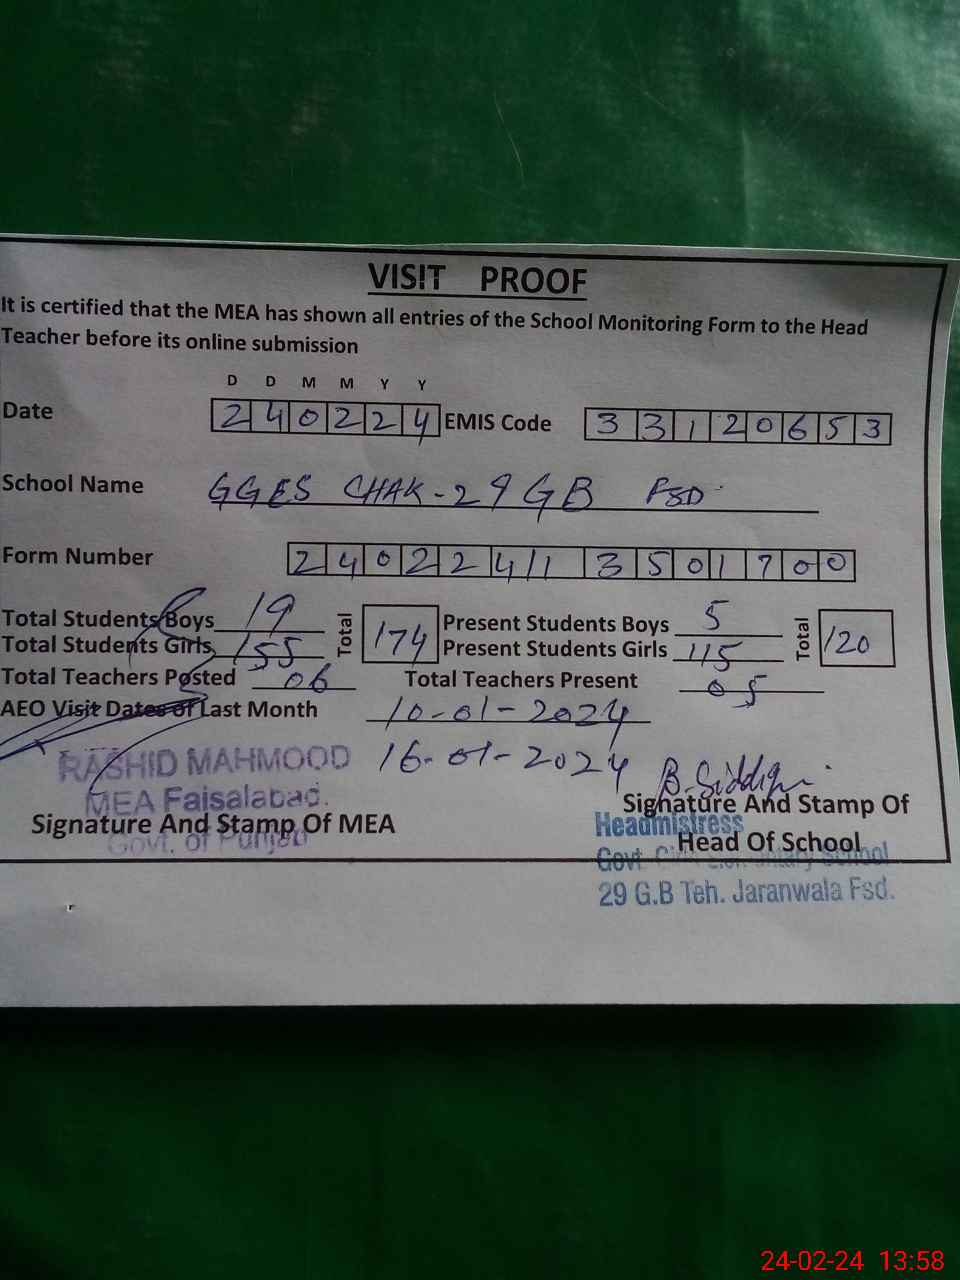 VISIT PROOF
It is certified that the MEA has shown all entries of the School Monitoring Form to the Head
Teacher before its online submission
D D M M Y Y
Date 2 4 0 2 2 4 EMIS Code 3 3 1 2 0 6 5 3
School Name GGES CHAK-29 GB FSD
Form Number 2 4 0 2 2 4 1 1 3 5 0 1 7 0 0
Total Students Boys 19 Total 174 Present Students Boys 5 Total 120
Total Students Girls 155 Present Students Girls 115
Total Teachers Posted 06 Total Teachers Present 05
AEO Visit Dates of Last Month 10-01-2024
16-01-2024
RASHID MAHMOOD
MEA Faisalabad.
Govt. of Punjab
Signature And Stamp Of MEA
B. Siddiqui
Signature And Stamp Of
Head Of School
Headmistress
Govt Girls Elementary School
29 G.B Teh. Jaranwala Fsd.
24-02-24 13:58